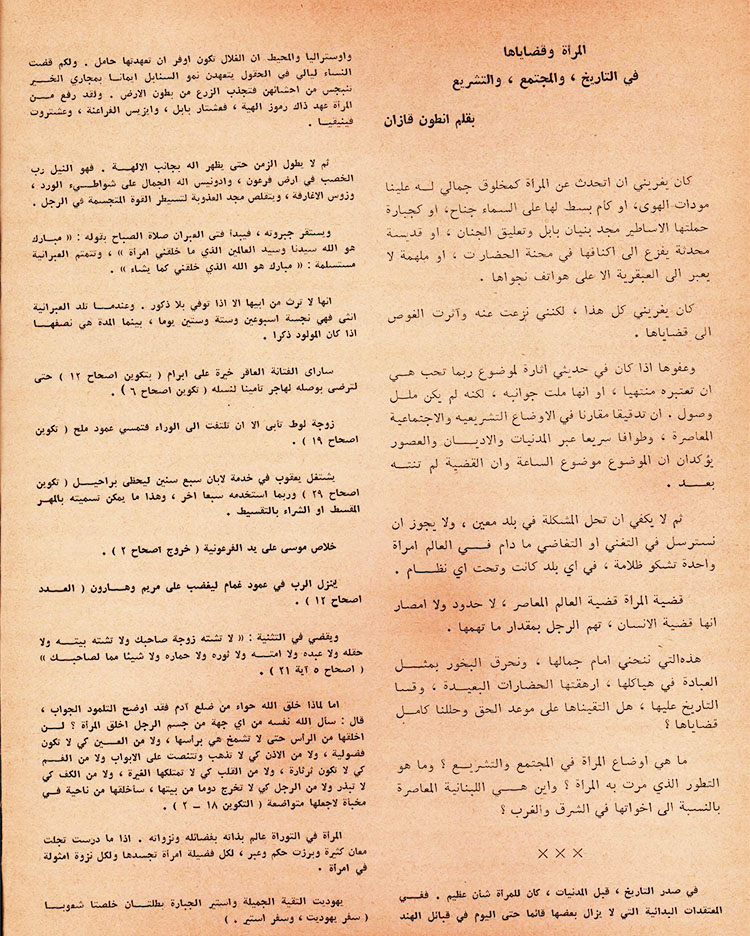 المرأة وقضاياها
في التاريخ ، والمجتمع ، والتشريع
بقلم انطون قازان
كان يغريني ان اتحدث عن المرأة كمخلوق جمالي لــه علينا
مودات الهوى، او كام بسط لها على السماء جناح، او كجبارة
حملتها الاساطير مجد بنيان بابل وتعليق الجنان ، او قديسة
محدثة يفزع الى اكنافها في محنة الحضارات ، او ملهمة لا
يعبر الى العبقرية الا على هواتف نجواها .
كان يغريني كل هذا ، لكنني نزعت عنه وآثرت الغوص
الى قضاياها .
وعفوها اذا كان في حديثي اثارة لموضوع ربما تحب هــي
ان تعتبره منتهيا ، او انها ملت جوانبه ، لكنه لم يكن ملــل
وصول . ان تدقيقا مقارنا في الاوضاع التشريعيه والاجتماعية
المعاصرة ، وطوافا سريعا عبر المدنيات والاديــان والعصور
يؤكدان ان الموضوع موضوع الساعة وان القضية لم تنتــه
بعـــد .
ثم لا يكفي ان تحل المشكلة في بلد معين ، ولا يجوز ان
نسترسل في التغني او التغاضي ما دام فــي العالم امرأة
واحدة تشكو ظلامة ، في اي بلد كانت وتحت اي نظــام .
قضية المرأة قضية العالم المعاصر ، لا حدود ولا امصار
انها قضية الانسان ، تهم الرجل بمقدار ما تهمها .
هذهالتي ننحني امام جمالها ، ونحرق البخور بمثــل
العبادة في هياكلها ، ارهقتها الحضارات البعيــدة ، وقسا
التاريخ عليها ، هل التقيناها على موعد الحق وحللنا كامــل
قضاياها ؟
ما هي اوضاع المرأة في المجتمع والتشريــع ؟ وما هو
التطور الذي مرت به المرأة ؟ واين هــي اللبنانية المعاصرة
بالنسبة الى اخواتها في الشرق والغرب ؟
× × ×
في صدر التاريخ ، قبل المدنيات ، كان للمرأة شأن عظيم . ففــي
المعتقدات البدائية التي لا يزال بعضها قائما حتى اليوم في قبائل الهند
واوستراليا والمحيط ان الغلال تكون اوفر ان تعهدتها حامل . ولكم قضت
النساء ليالي في الحقول يتعهدن نمو السنابل ايمانا بمجاري الخــير
تنبجس من احشائهن فتجذب الزرع من بطون الارض . ولقد رفع مــن
المرأة عهد ذاك رموز الهية ، فعشتار بابل ، وايزيس الفراعنة ، وعشتروت
فينيقيا .
ثم لا يطول الزمن حتى يظهر اله بجانب الالهــة . فهو النيل رب
الخصب في ارض فرعون ، وادونيس اله الجمال على شواطــيء الورد ،
وزوس الاغارقة ، ويتقلص مجد العذوبة لتسيطر القوة المتجسمة في الرجل .
ويستقر جبروته ، فيبدأ فتى العبران صلاة الصباح بقوله : « مبارك
هو الله سيدنا وسيد العالمين الذي ما خلقني امرأة » ، وتتمتم العبرانية
مستسلمة : « مبارك هو الله الذي خلقني كما يشاء » .
انها لا ترث من ابيها الا اذا توفي بلا ذكور . وعندمــا تلد العبرانية
انثى فهي نجسة اسبوعين وستة وستين يوما ، بينما المدة هي نصفهــا
اذا كان المولود ذكرا .
ساراي الفتانة العاقر خيرة على ابرام ( بتكوين اصحاح ١٢ ) حتى
لترضى بوصله لهاجر تأمينا لنسله ( تكوين اصحاح ٦ ) .
زوجة لوط تأبى الا ان تلتفت الى الوراء فتمسي عمود ملح ( تكوين
اصحاح ١٩ ) .
يشتغل يعقوب في خدمة لابان سبع سنين ليحظى براحيــل ( تكوين
اصحاح ٢٩ ) وربما استخدمه سبعا اخر ، وهذا ما يمكن تسميته بالمهــر
المقسط او الشراء بالتقسيط .
خلاص موسى على يد الفرعونية ( خروج اصحاح ٢ ) .
ينزل الرب في عمود غمام ليغضب على مريم وهــارون ( العــدد
اصحاح ١٢ ) .
ويقضي في التثنية : « لا تشته زوجة صاحبك ولا تشته بيتــه ولا
حقله ولا عبده ولا امتــه ولا ثوره ولا حماره ولا شيئا مما لصاحبــك »
( اصحاح ٥ آية ٢١ ) .
اما لماذا خلق الله حواء من ضلع آدم فقد اوضح التلمود الجواب ،
قال : سأل الله نفسه من اي جهة من جسم الرجل اخلق المرأة ؟ لــن
اخلقها من الرأس حتى لا تشمخ هي برأسها ، ولا من العــين كي لا تكون
فضولية ، ولا من الاذن كي لا تذهب وتتنصت على الابواب ولا من الفــم
كي لا تكون ثرثارة ، ولا من القلب كي لا تمتلكها الغيرة ، ولا من الكف كي
لا تبذر ولا من الرجل كي لا تخرج دوما من بيتها ، سأخلقها من ناحية فــي
مخبأة لاجعلها متواضعة ( التكوين ١٨ – ٢ ) .
المرأة في التوراة عالم بذاته بفضائله ونزواته . اذا ما درست تجلت
معان كثيرة وبرزت حكم وعبر ، لكل فضيلة امرأة تجسدها ولكل نزوة امثولة
في امرأة .
يهوديت التقية الجميلة واستير الجبارة بطلتــان خلصتا شعوبــا
( سفر يهوديت ، وسفر استير . )